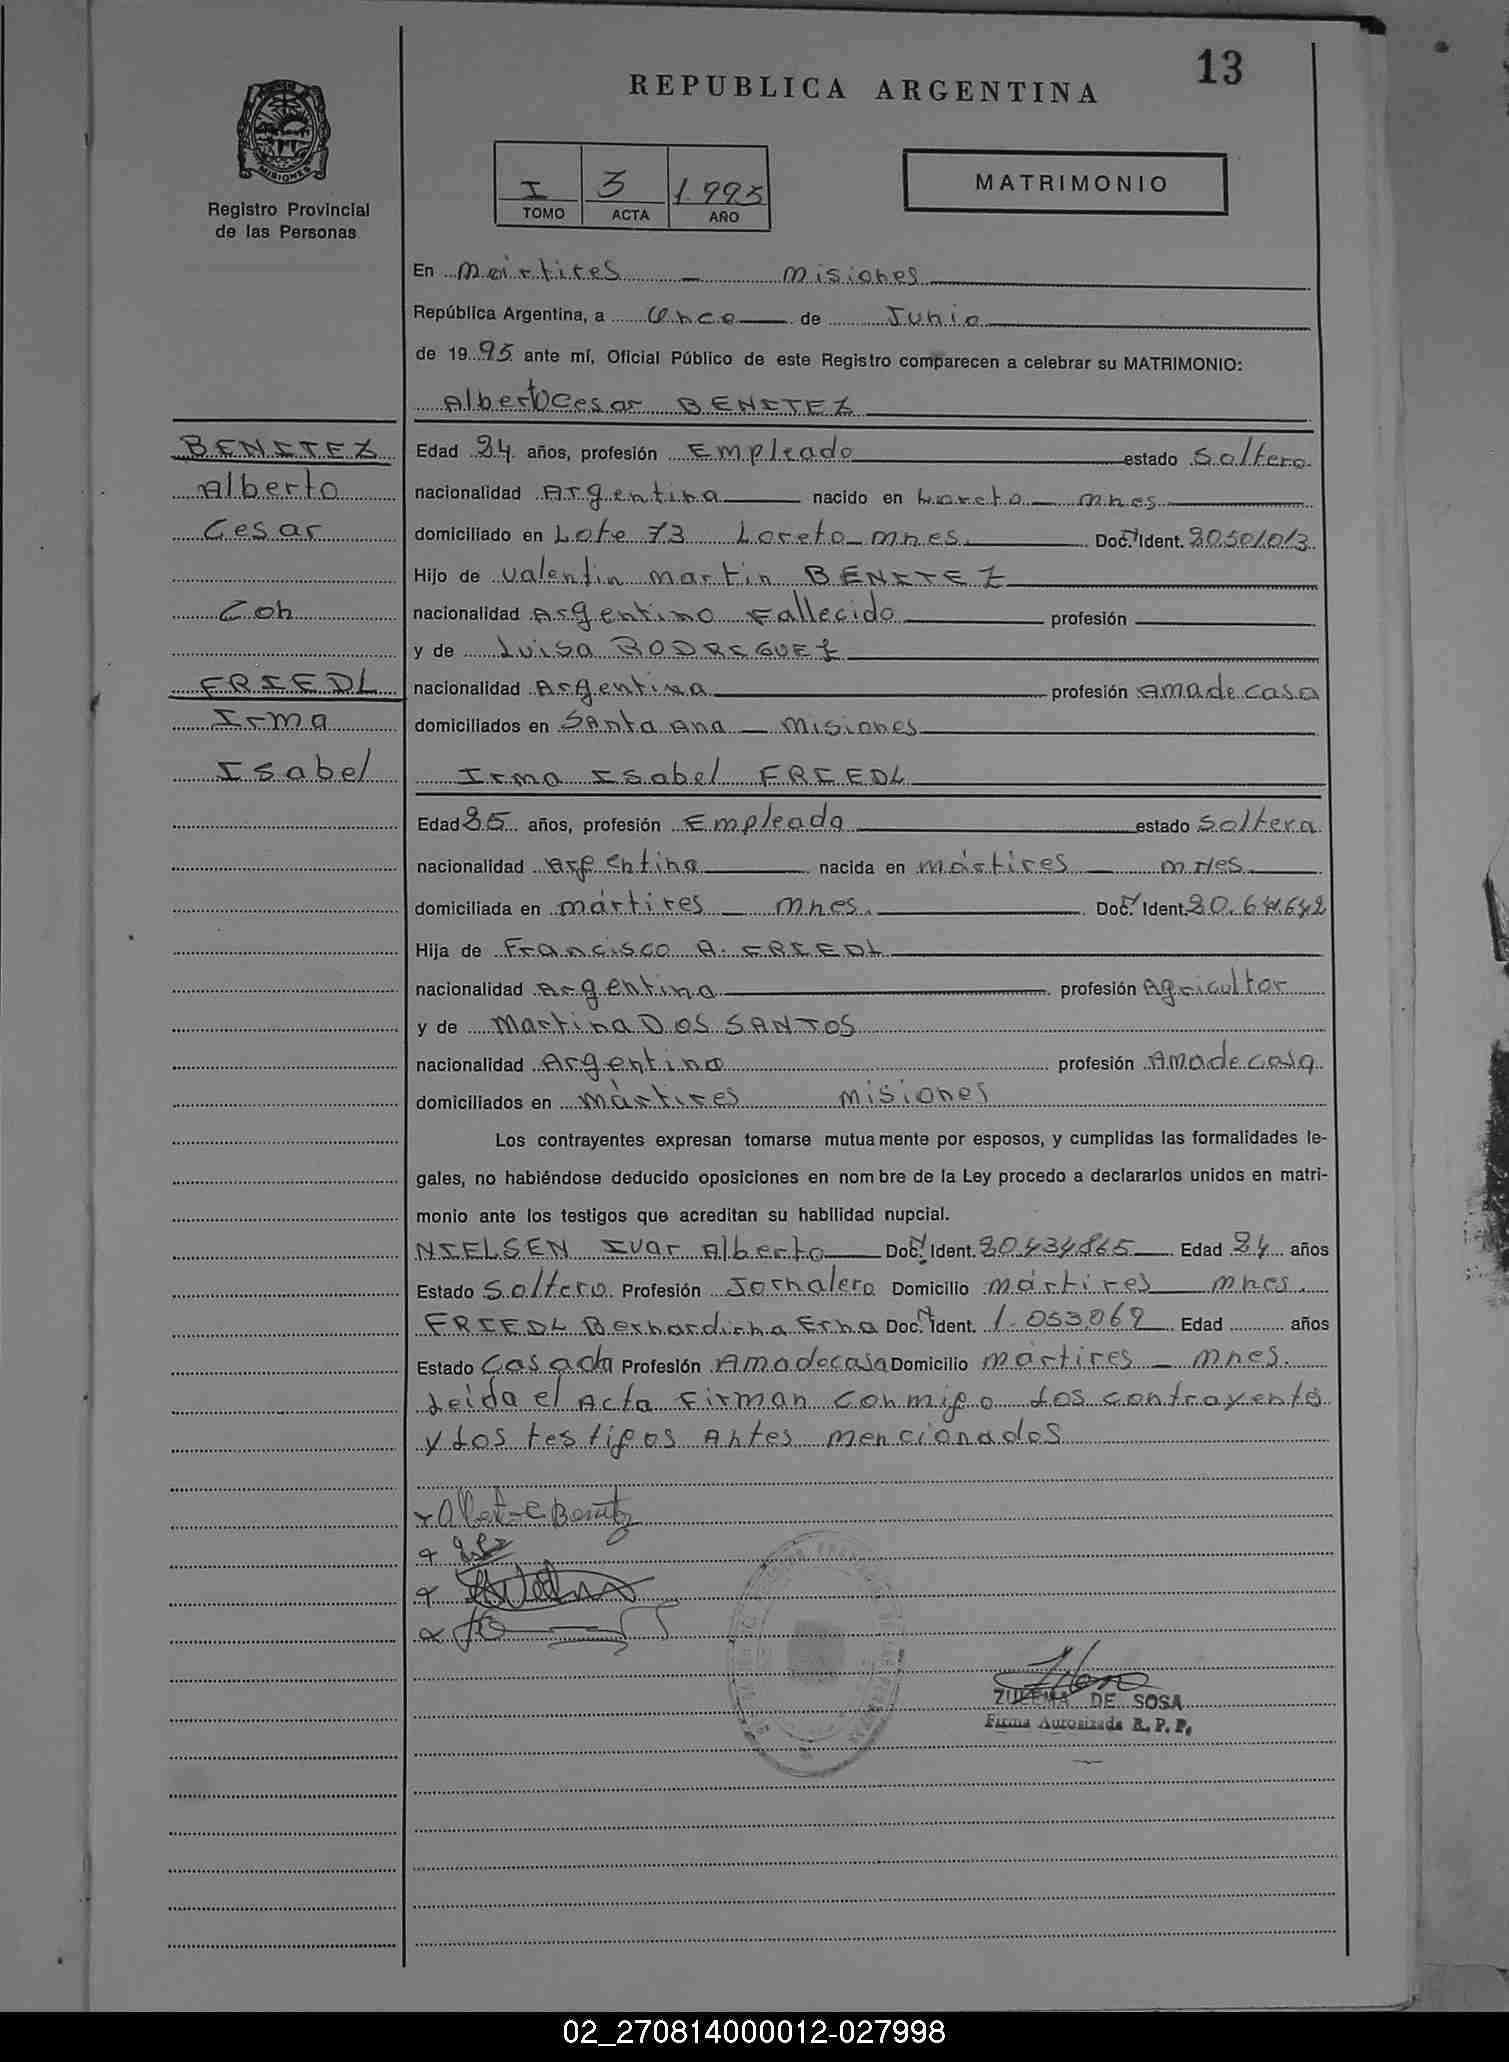 13
REPUBLICA ARGENTINA
MISIONES
Registro Provincial
de las Personas
I 3 1.995
TOMO ACTA AÑO
MATRIMONIO
En mártires - misiones
República Argentina, a Once de Junio
de 1995 ante mí, Oficial Público de este Registro comparecen a celebrar su MATRIMONIO:
Alberto Cesar BENITEZ
BENITEZ
Alberto
Cesar
Con
FRIEDL
Irma
Isabel
Edad 24 años, profesión Empleado estado Soltero
nacionalidad Argentina nacido en Loreto - mnes
domiciliado en Lote 73 Loreto - mnes. Doc. Ident. 20501013
Hijo de Valentin martin BENITEZ
nacionalidad Argentino Fallecido profesión
y de Luisa RODRIGUEZ
nacionalidad Argentina profesión Ama de casa
domiciliados en Santa Ana - misiones
Irma Isabel FRIEDL
Edad 25 años, profesión Empleada estado Soltera
nacionalidad Argentina nacida en mártires - mnes
domiciliada en mártires - mnes. Doc. Ident.
Hija de Francisco A. FRIEDL
nacionalidad Argentina profesión Agricultor
y de Martina DOS SANTOS
nacionalidad Argentina profesión Ama de casa
domiciliados en mártires misiones
Los contrayentes expresan tomarse mutuamente por esposos, y cumplidas las formalidades le-
gales, no habiéndose deducido oposiciones en nombre de la Ley procedo a declararlos unidos en matri-
monio ante los testigos que acreditan su habilidad nupcial.
NIELSEN Ivar Alberto Doc. Ident. 20434865 Edad 24 años
Estado Soltero Profesión Jornalero Domicilio mártires - mnes.
FRIEDL Bernardinha Erna Doc. Ident. 1.053.062 Edad años
Estado Casada Profesión Ama de casa Domicilio mártires - mnes.
Leida el Acta Firman conmigo Los contrayente
y Los testigos Antes mencionados
ZULEMA DE SOSA
Firma Autorizada R. P. P.
02_270814000012-027998